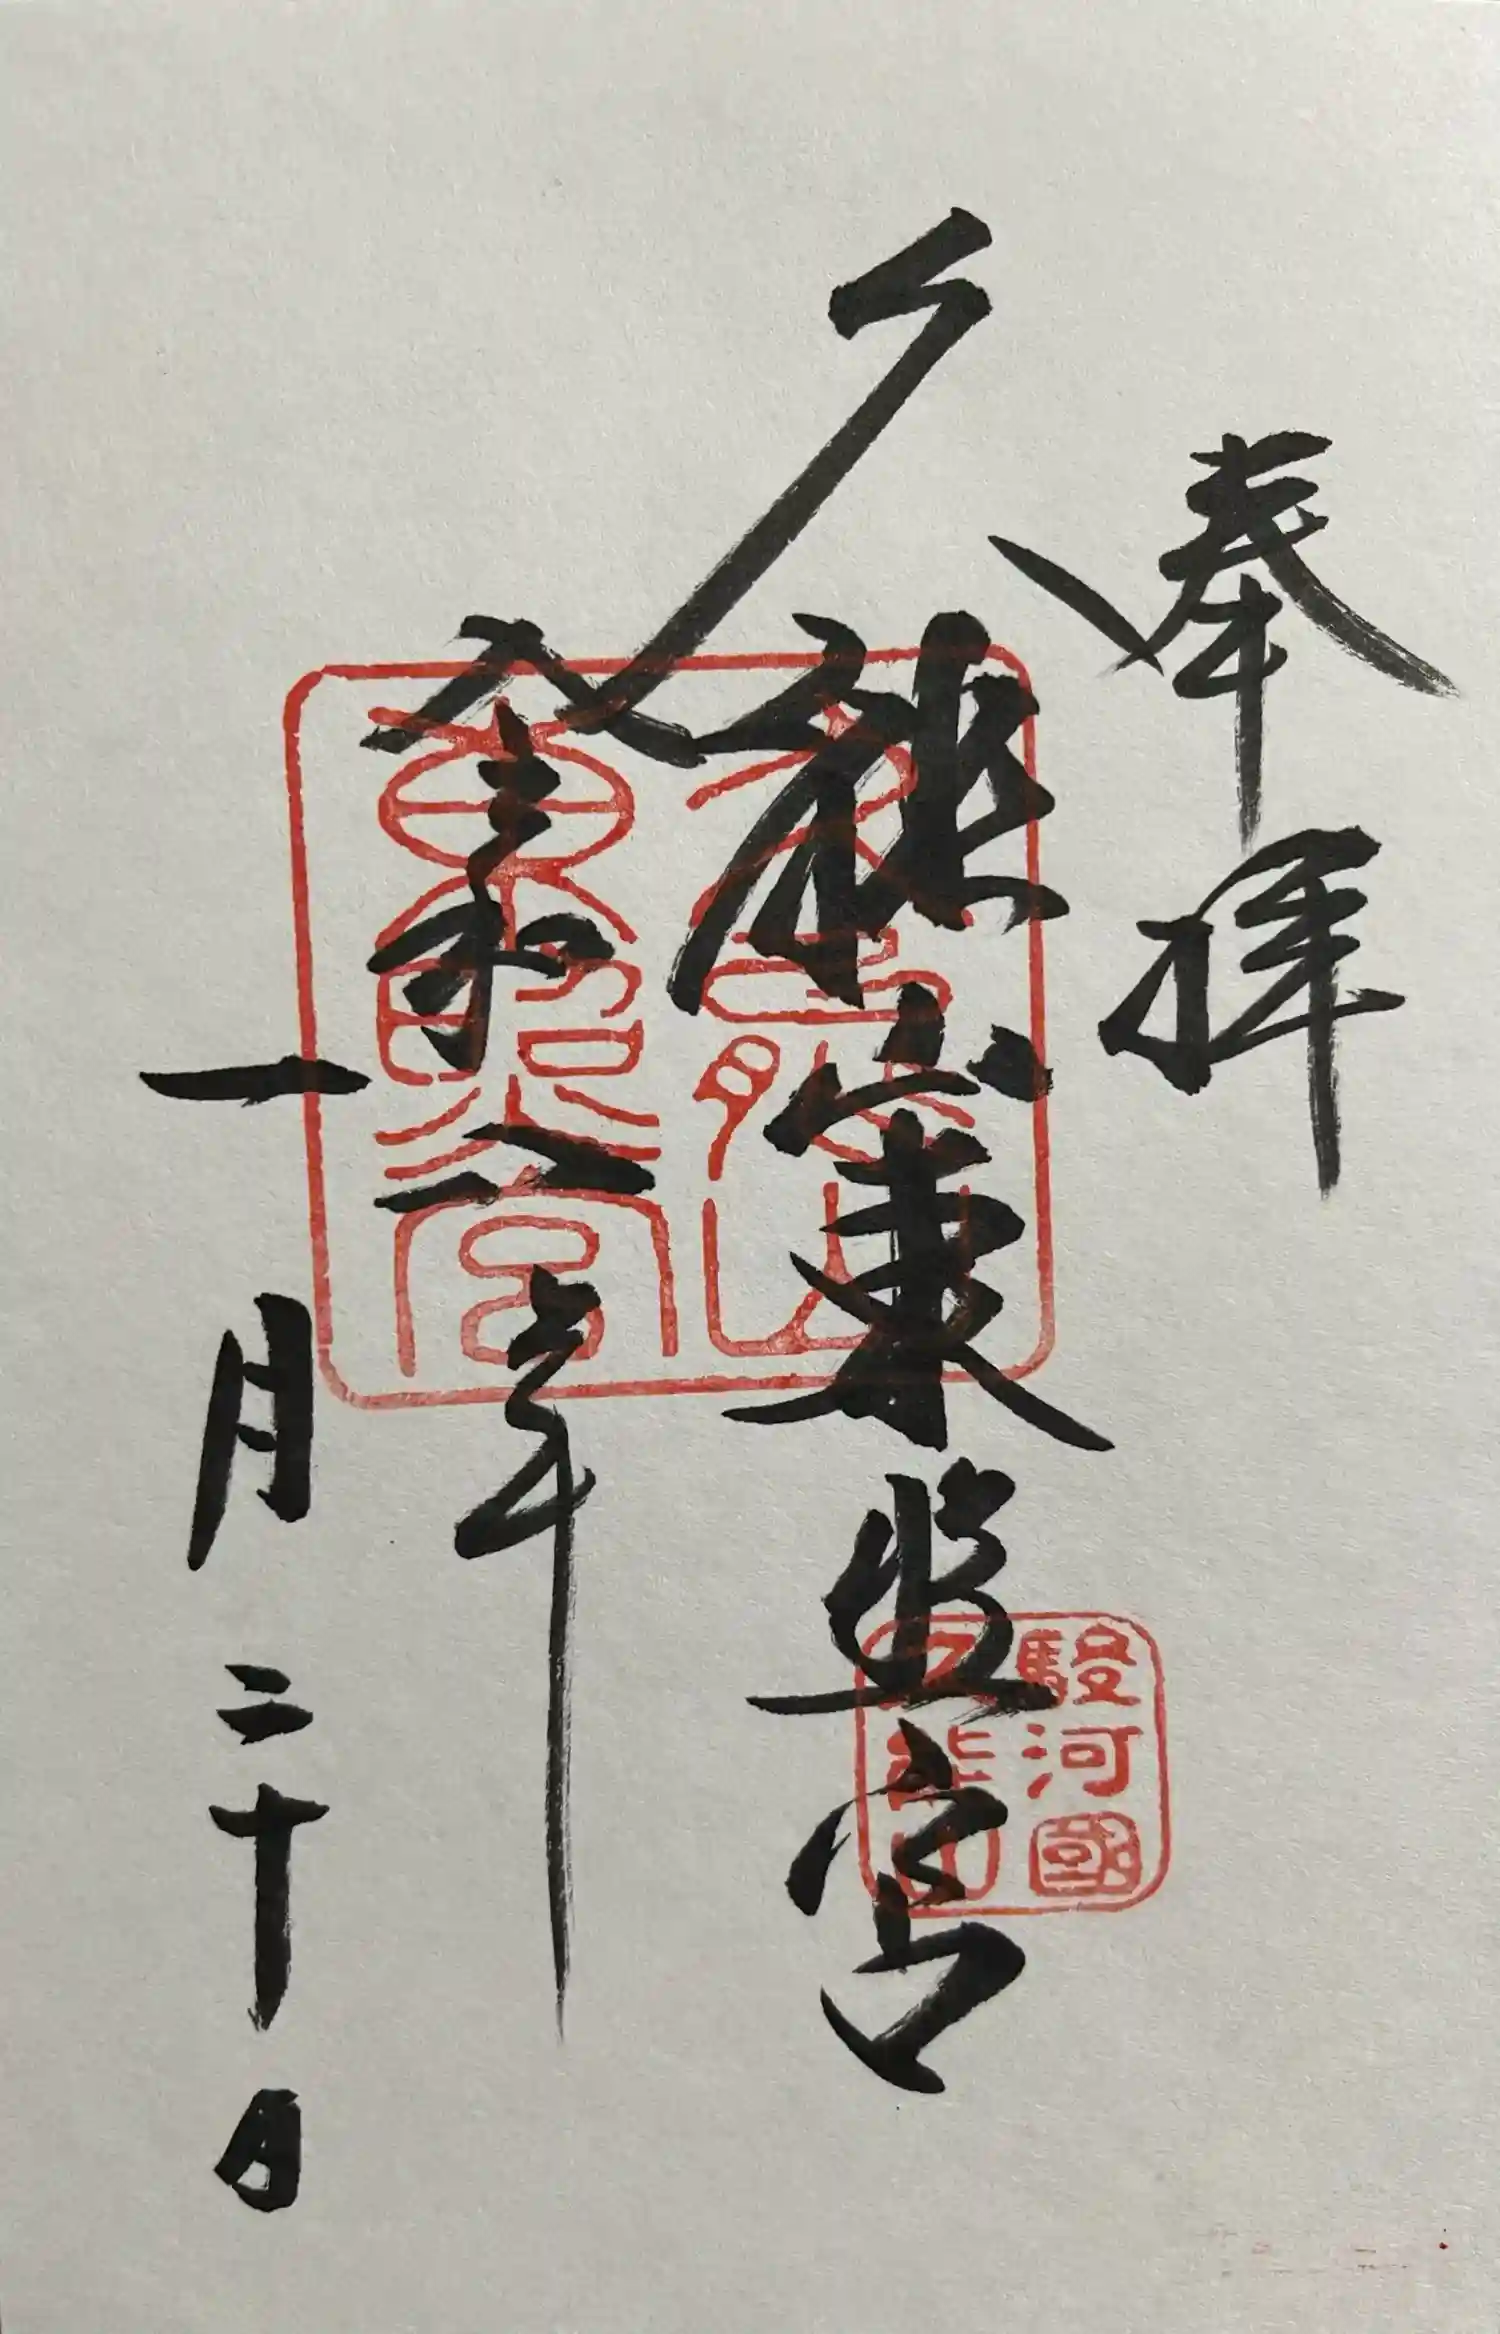 奉拝
久能山東照宮
令和八年
一月二十日
久能山
東照宮
駿河國
久能山